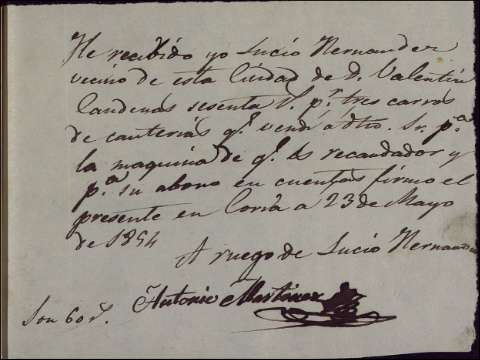 He recibido yo Lucio Hernandez
vecino de esta Ciudad de D. Valentin
Cardenas sesenta r.s p.r tres carros
de canterias q.e vendi á dho. Sr. p.a
la maquina de q.e es recaudador y
p.a su abono en cuentas firmo el
presente en Coria a 23 de Mayo
de 1854
A ruego de Lucio Hernandez
Son 60 r.s Antonio Martinez